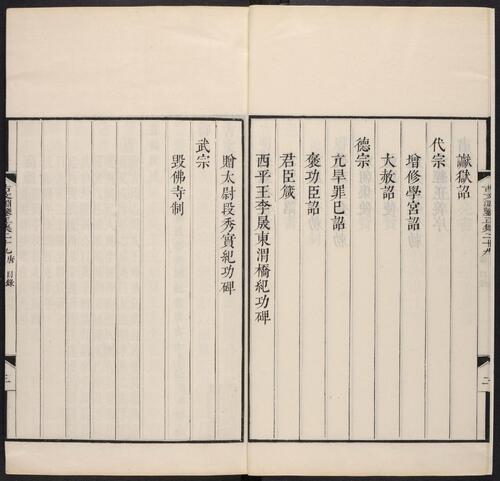 讞獄詔
代宗
增修學宮詔
大赦詔
德宗
亢旱罪已詔
褒功臣詔
君臣箴
西平王李晟東渭橋紀功碑
贈太尉段秀實紀功碑
武宗
毀佛寺制
唐 目錄
三
二